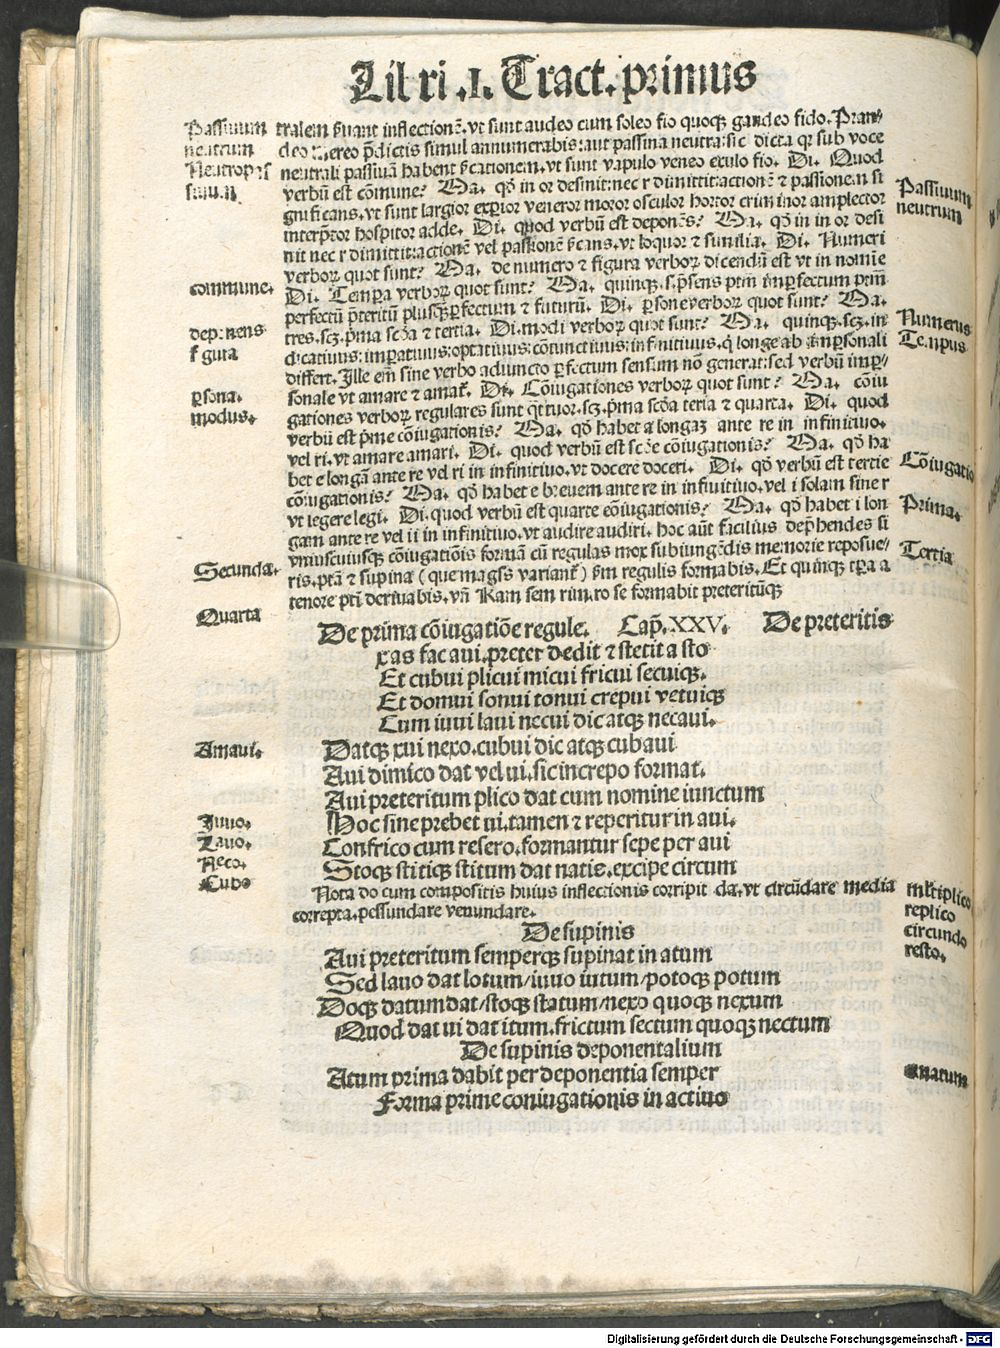 Libri .I. Tract. primus
Passiuum neutrum
Neutropassiuum
commune.
deponens
figura
ꝑsona.
modus.
Secunda.
Quarta
Amaui.
Iuuo.
Lauo.
Neco.
Cubo
tralem ẜuant inflectionē. vt sunt audeo cum soleo fio quoqꝫ gaudeo fido. Pran/
deo mereo p̄dictis simul annumerabis: aut passiua neutra: sic dicta qꝛ sub voce
neutrali passiuā habent ẜcationem. vt sunt vapulo veneo exulo fio. Di. Quod
verbū est cōmune? Ma. qd̄ in or desinit: nec r dimittit: actionē ⁊ passionem si
gnificans. vt sunt largior experior veneror moror osculor hortor criminor amplector
interp̄tor hospitor adde. Di. quod verbū est deponēs? Ma. qd̄ in or desi
nit nec r dimittit: actionē vel passionē ẜcans. vt loquor ⁊ similia. Di. Numeri
verboꝝ quot sunt? Ma. de numero ⁊ figura verboꝝ dicendū est vt in nomīe
Di. Tempora verboꝝ quot sunt? Ma. quinqꝫ. s. p̄sens ptm̄ imꝑfectum ptm̄
perfectū p̄teritū plusqꝫꝑfectum ⁊ futurū. Di. ꝑsone verboꝝ quot sunt? Ma.
tres. sꝫ. p̄ma scd̄a ⁊ tertia. Di. modi verboꝝ quot sunt? Ma. quinqꝫ. sꝫ. in
dicatiuus: imꝑatiuus: optatiuus: cōiunctiuus: infinitiuus. q̄ longe ab imꝑsonali
differt. Ille em̄ sine verbo adiuncto ꝑfectum sensum nō generat: sed verbū imꝑ/
sonale vt amare ⁊ amat᷑. Di. Cōiugationes verboꝝ quot sunt? Ma. cōiu
gationes verboꝝ regulares sunt qͣttuor. sꝫ. p̄ma scd̄a tertia ⁊ quarta. Di. quod
verbū est p̄me cōiugationis? Ma. qd̄ habet a longaꝫ ante re in infinitiuo.
vel ri. vt amare amari. Di. quod verbū est scd̄e cōiugationis? Ma. qd̄ ha
bet e longā ante re vel ri in infinitiuo. vt docere doceri. Di. qd̄ verbū est tertie
cōiugationis? Ma. qd̄ habet e breuem ante re in infinitiuo. vel i solam sine r
vt legere legi. Di. quod verbū est quarte cōiugationis? Ma. qd̄ habet i lon
gam ante re vel ri in infinitiuo. vt audire audiri. hoc aūt facilius dep̄hendes si
vniuscuiusqꝫ cōiugatiōis formā cū regulas mox subiungēdis memorie reposue/
ris. ptā ⁊ supina (que magis variant᷑) ẜm regulis formabis. Et quinqꝫ tꝑa a
tenore ptī deriuabis. vn̄ Ram sem rim. ro se formabit preteritūqꝫ
De prima cōiugatiōe regule. Cap̄. XXV. De preteritis
xas fac aui. preter dedit ⁊ stetit a sto
Et cubui plicui micui fricui secuiqꝫ.
Et domui sonui tonui crepui vetuiqꝫ
Cum iuui laui necui dic atqꝫ necaui.
Datqꝫ xui nexo. cubui dic atqꝫ cubaui
Aui dimico dat vel ui. sic increpo format.
Aui preteritum plico dat cum nomine iunctum
Hoc sine prebet ui. tamen ⁊ reperitur in aui.
Confrico cum resero. formantur sepe per aui
Stoqꝫ stitiqꝫ stitum dat natis. excipe circum
Nota do cum compositis huius inflectionis corripit da. vt circūdare media
correpta. pessundare venundare.
De supinis
Aui preteritum semperqꝫ supinat in atum
Sed lauo dat lotum/iuuo iutum/potoqꝫ potum
Doqꝫ datum dat/stoqꝫ statum/nexo quoqꝫ nexum
Quod dat ui dat itum. frictum sectum quoqꝫ nectum
De supinis deponentalium
Atum prima dabit per deponentia semper
Forma prime coniugationis in actiuo
Passiuum
neutrum
Numerus
Tempus
Cōiugatio
Prima.
Tertia
multiplico
replico
circundo
resto.
Digitalisierung gefördert durch die Deutsche Forschungsgemeinschaft - DFG